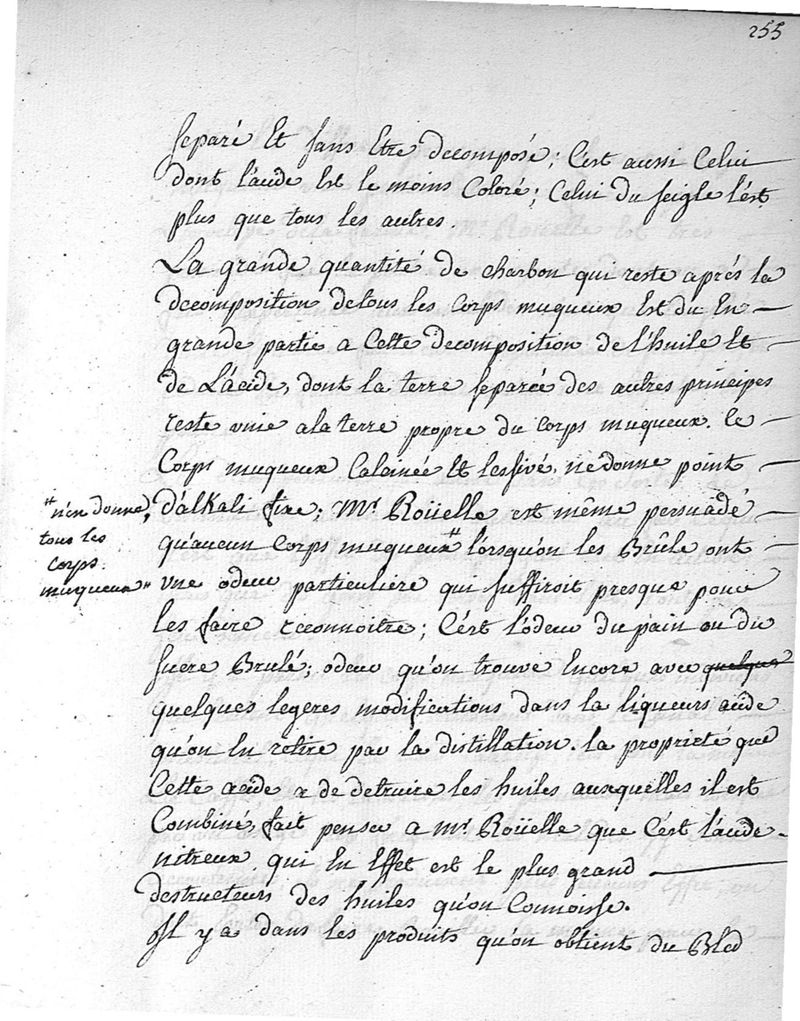 255
separé Et sans Etre decomposé; C'est aussi Celui
dont l'acide Est le moins Coloré; Celui du seigle l'est
plus que tous les autres
La grande quantité de charbon qui reste aprés la
decomposition detous les Corps muqueux Est du En
grande partie a Cette decomposition de l'huile Et
de L'acide, dont la terre separée des autres principes
reste unie ala terre propre du Corps muqueux. Ce
Corps muqueux Calciné Et lessivé, ne donne point
d'alkali fixe; Mr. Roüelle est même persuadé
qu'aucun Corps muqueux # lorsqu'on les Brûle ont
# n'en donne,
tous les
Corps
muqueux "
une odeur particuliére qui suffiroit presque pour
les faire reconnoitre; C'est l'odeur du pain ou du
sucre Brulé; odeur qu'on trouve Encore avec quelque
quelques legeres modifications dans la liqueurs acide
qu'on En retire par la distillation. la proprieté que
Cette acide a de detruire les huiles auxquelles il est
Combiné, fait penser a Mr. Roüelle que C'est l'acide
nitreux qui En Effet est le plus grand
destructeurs des huiles qu'on Connoisse.
Il y a dans les produits qu'on obtient du Bled